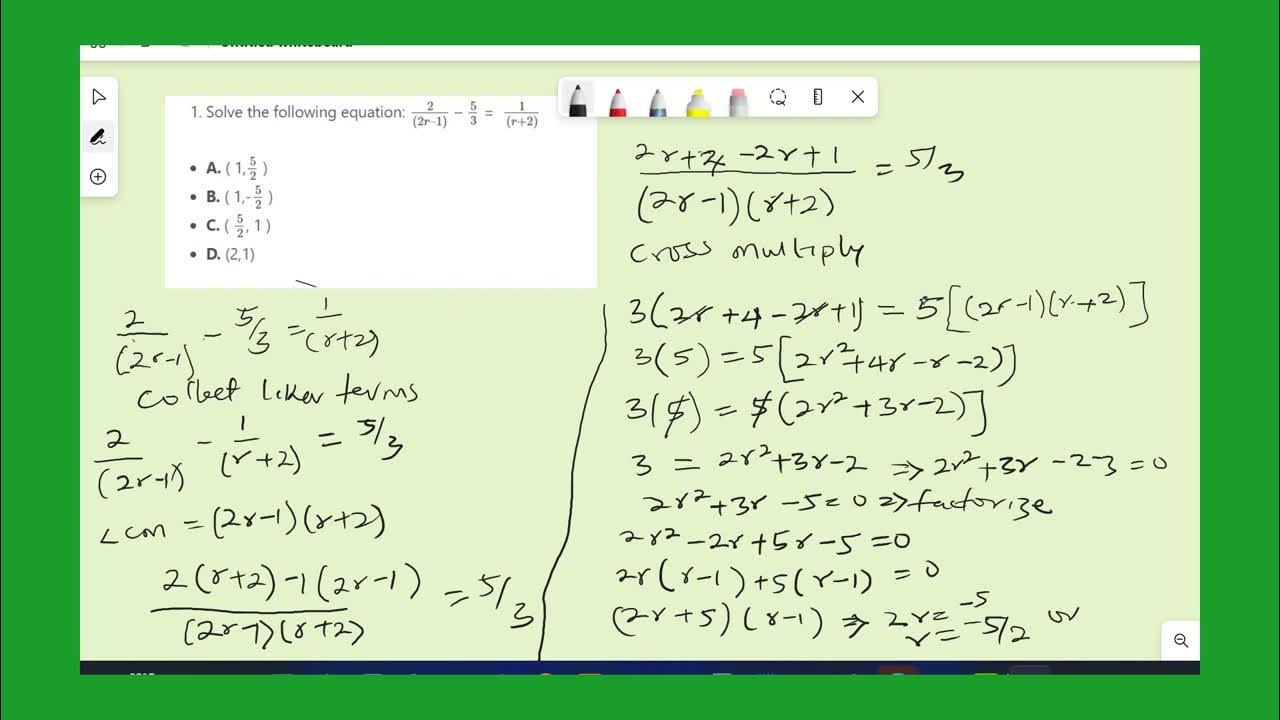 1. Solve the following equation: 2/(2r-1) - 5/3 = 1/(r+2)
• A. ( 1, 5/2 )
• B. ( 1,- 5/2 )
• C. ( 5/2, 1 )
• D. (2,1)
2/(2r-1) - 5/3 = 1/(r+2)
collect liker terms
2/(2r-1) - 1/(r+2) = 5/3
Lcm = (2r-1)(r+2)
2(r+2)-1(2r-1)/(2r-1)(r+2) = 5/3
2r+4-2r+1/(2r-1)(r+2) = 5/3
cross multiply
3(2r+4-2r+1) = 5[(2r-1)(r+2)]
3(5) = 5[2r²+4r-r-2)]
3(5) = 5(2r²+3r-2)]
3 = 2r²+3r-2 => 2r²+3r-2-3=0
2r²+3r-5=0 => factorize
2r²-2r+5r-5=0
2r(r-1)+5(r-1)=0
(2r+5)(r-1) => 2r=-5
r=-5/2 or